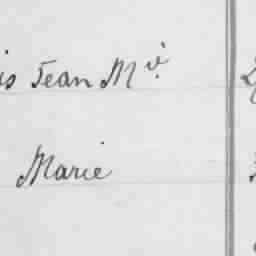 is Jean M.e
Marie